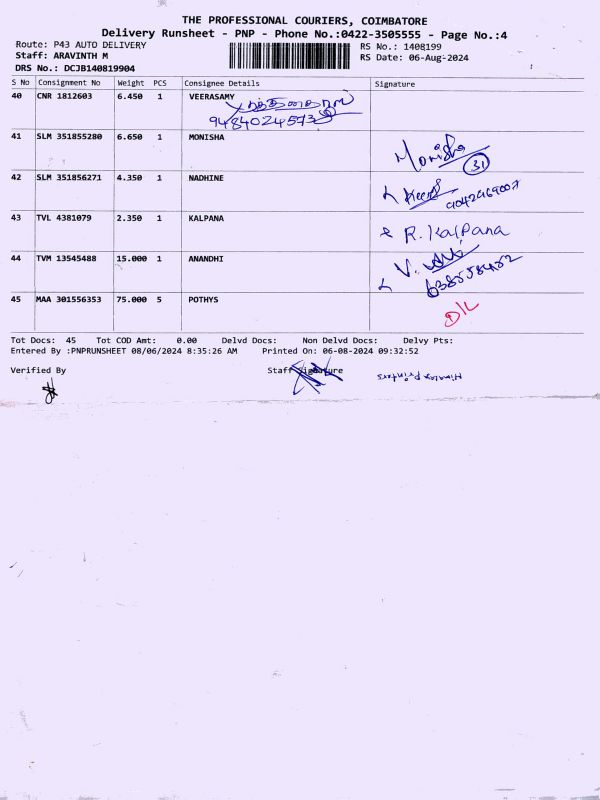 THE PROFESSIONAL COURIERS, COIMBATORE
Delivery Runsheet - PNP - Phone No.:0422-3505555 - Page No.:4
Route: P43 AUTO DELIVERY
Staff: ARAVINTH M
DRS No.: DCJB140819904
RS No.: 1408199
RS Date: 06-Aug-2024
S No Consignment No Weight PCS Consignee Details Signature
40 CNR 1812603 6.450 1 VEERASAMY
9484024573
41 SLM 351855280 6.650 1 MONISHA Monisha
31
42 SLM 351856271 4.350 1 NADHINE
9042969007
43 TVL 4381079 2.350 1 KALPANA R. Kalpana
44 TVM 13545488 15.000 1 ANANDHI V.
6385584182
45 MAA 301556353 75.000 5 POTHYS D/L
Tot Docs: 45 Tot COD Amt: 0.00 Delvd Docs: Non Delvd Docs: Delvy Pts:
Entered By :PNPRUNSHEET 08/06/2024 8:35:26 AM Printed On: 06-08-2024 09:32:52
Verified By Staff Signature
Printers